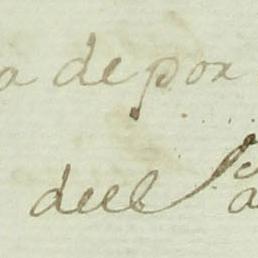 a de por
deel